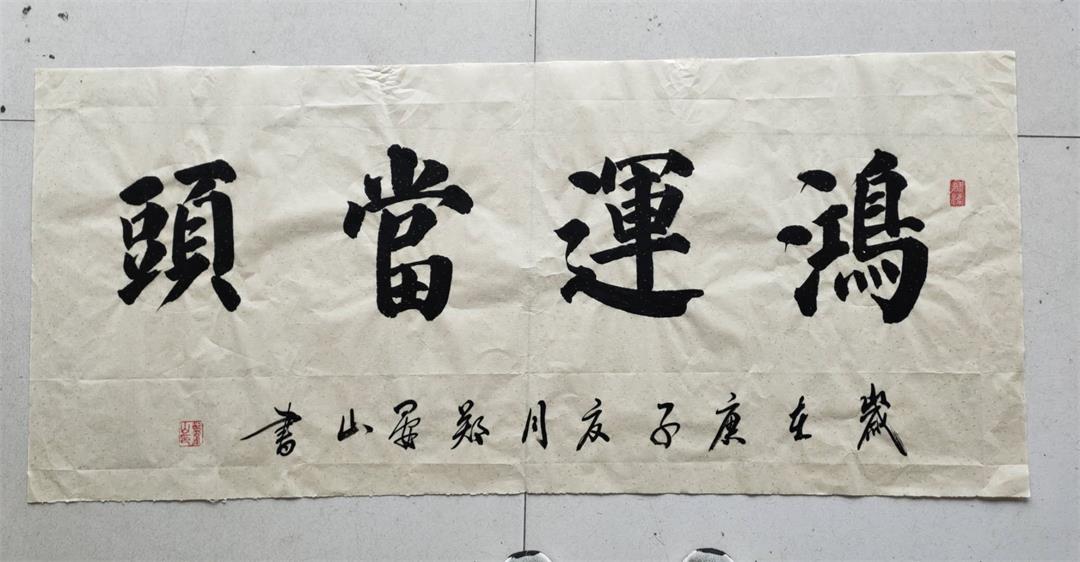 鴻運當頭
歲在庚子夏月鄭山書